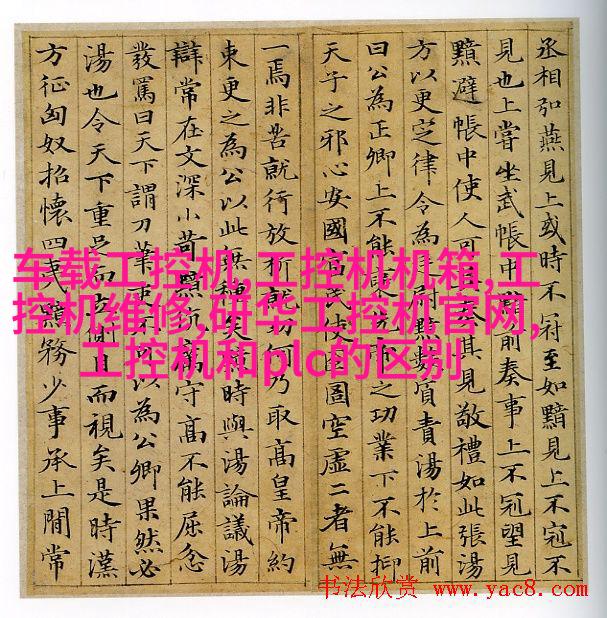 丞相弘燕見上或時不冠至如黯見上不冠不
見也上嘗坐武帳中前奏事上不冠望見
黯避帳中使人可其奏其見敬禮如此張湯
方以更定律令為廷尉黯數質責湯於上前
曰公為正卿上不能褒先帝之功業下不能抑
天子之邪心安國富民使囹圄空虛二者無
一焉非苦就行放析就功何乃取高皇帝約
束更之為公以此無種矣黯時與湯論議湯
辯常在文深小苛黯伉厲守高不能屈忿
發罵曰天下謂刀筆吏不可以為公卿果然必
湯也令天下重足而立側目而視矣是時漢
方征匈奴招懷四夷黯務少事承上間常
车载工控机,工控机机箱,工
控机维修,研华工控机官网,
工控机和plc的区别
书法欣赏 www.yac8.com